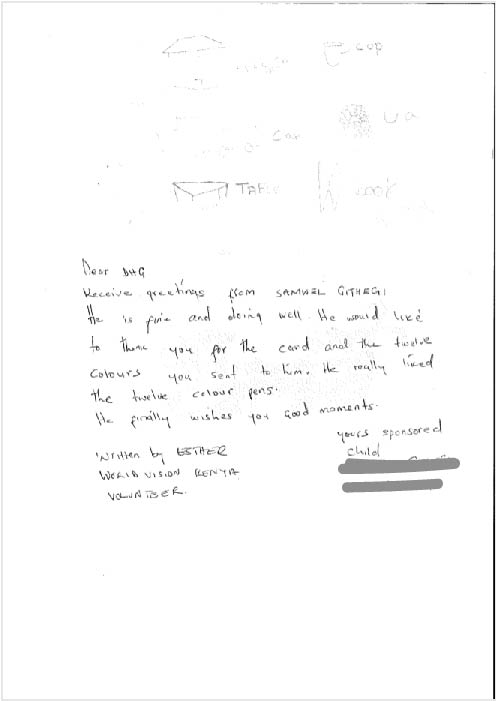 cup
car
ua
TABLE
Dear DHG
Receive greetings from SAMWEL GITHEGI
He is fine and doing well. He would like
to thank you for the card and the twelve
colours you sent to him. He really liked
the twelve colour pens.
He finally wishes you good moments.
yours sponsored
child
Written by ESTHER
WORLD VISION KENYA
VOLUNTEER.